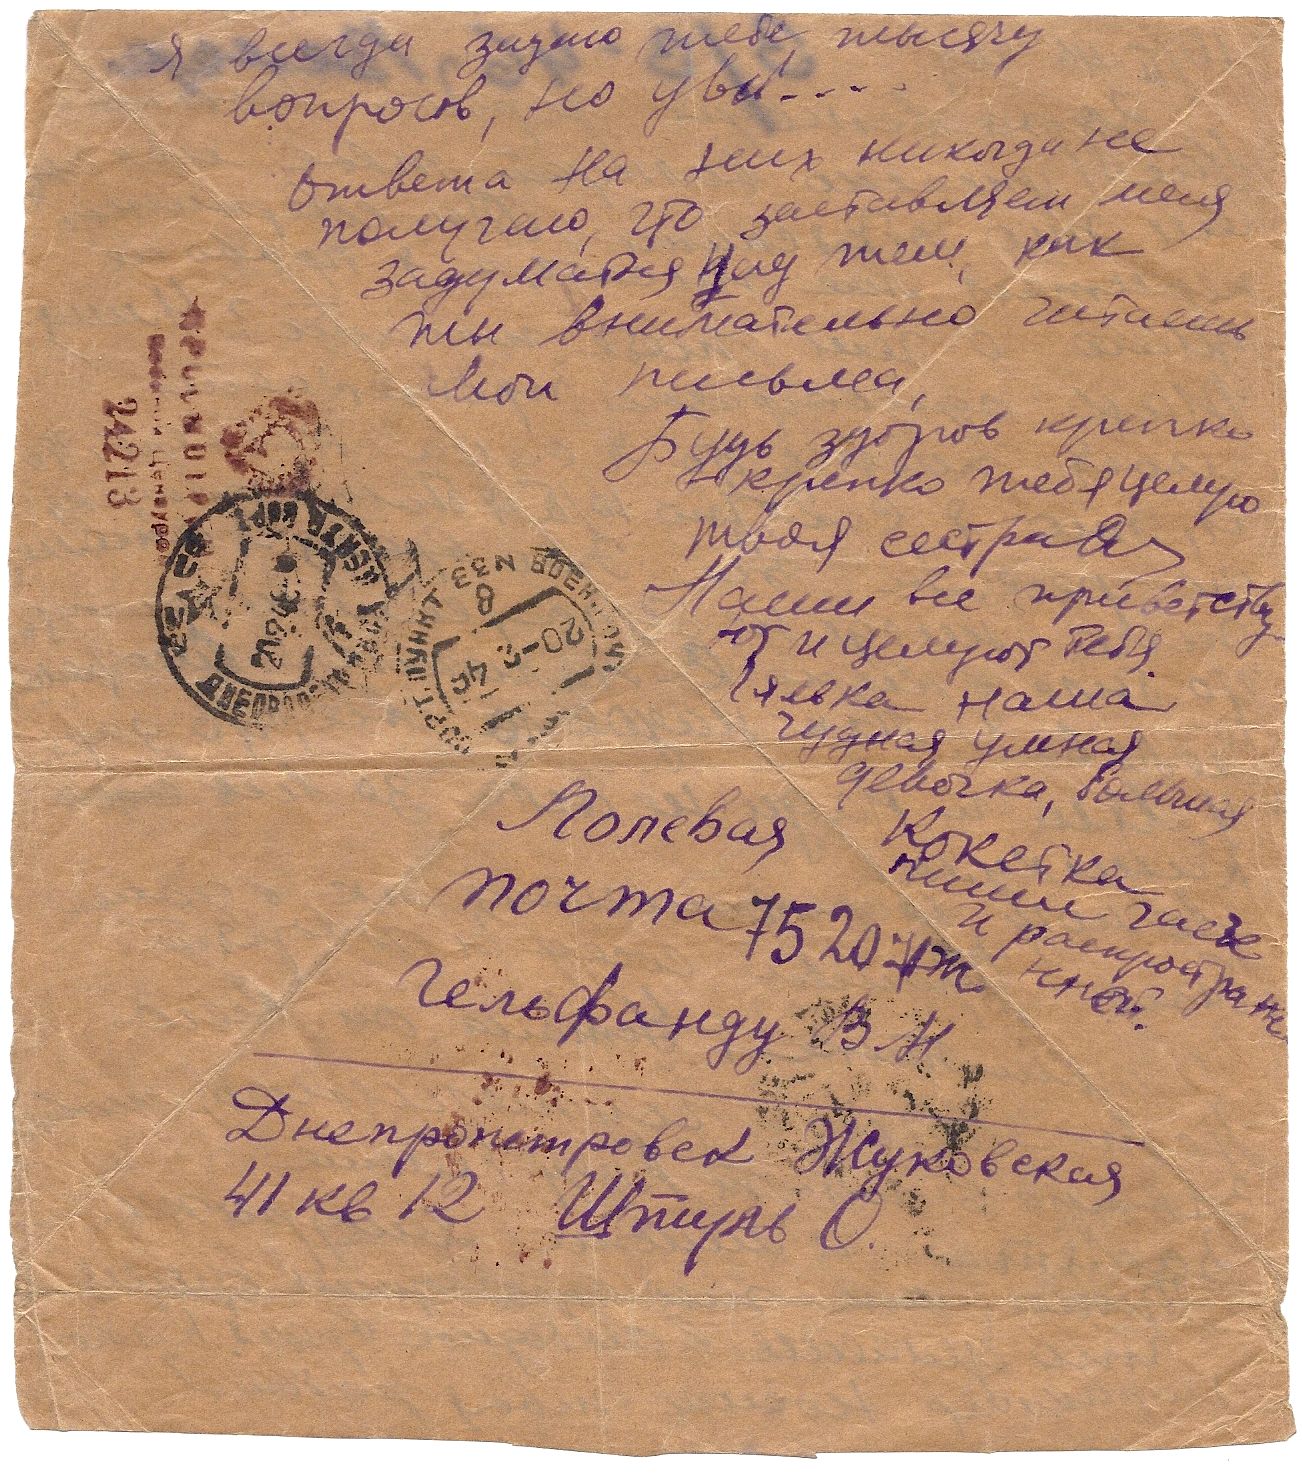 Я всегда задаю тебе тысячу
вопросов, но увы.....
Ответа на них никогда не
получаю, что заставляет меня
задуматься над тем, как
ты внимательно читаешь
мои письма,
Будь здоров крепко
крепко тебя целую
твоя сестра
Наши все приветству
ют и целуют тебя.
наша
чудная умная
девочка, большая
кокетка
пиши чаще
и распростране
нней.
Полевая
почта 75207
Гельфанду В Н
Днепропетровск Жуковская
41 кв 12 Штурль О.
★
24213
ДНЕПРОПЕТРОВСК
20-2 45
8
N33